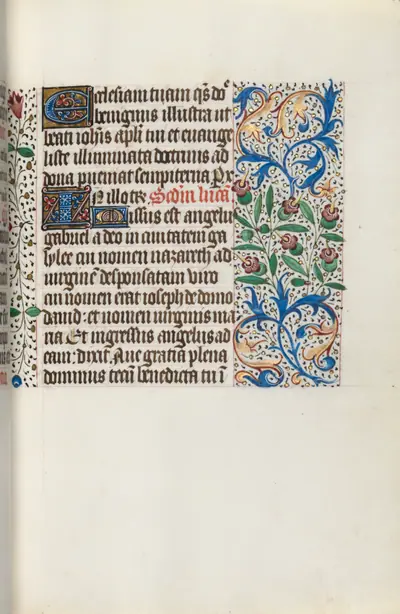 Ecclesiam tuam qs̄ dn̄e
benignus illustra ut
beati ioh̄is apl̄i tui et euange
liste illuminata doctrinis ad
dona perueniat sempiterna Px
In illo tꝑe Scd̄m lucā
Missus est angelus
gabriel a deo in ciuitatem ga
lylee cui nomen nazareth ad
uirginē desponsatam viro
cui nomen erat ioseph de domo
dauid et nomen uirginis ma
ria Et ingressus angelus ad
eam dixit Aue gratia plena
dominus tecū benedicta tu ī